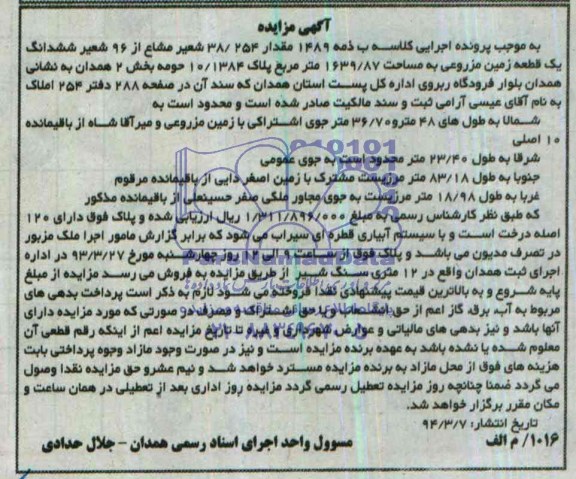 آگهی مزایده
به موجب پرونده اجرایی کلاسه ب ذمه ۱۴۸۹ مقدار ۳۸/۲۵۴ شعیر مشاع از ۹۶ شعیر ششدانگ
یک قطعه زمین مزروعی به مساحت ۱۶۳۹/۸۷ متر مربع پلاک ۱۰/۱۳۸۴ حومه بخش ۲ همدان به نشانی
همدان بلوار فرودگاه ربروی اداره کل پست استان همدان که سند آن در صفحه ۲۸۸ دفتر ۲۵۴ املاک
به نام آقای عیسی آرامی ثبت و سند مالکیت صادر شده است و محدود است به
شمالا به طول های ۴۸ مترو۳۶/۷۰ متر جوی اشتراکی با زمین مزروعی و میرآقا شاه از باقیمانده
۱۰ اصلی
شرقا به طول ۲۳/۴۰ متر محدود است به جوی عمومی
جنوبا به طول ۸۳/۱۸ متر مرزیست مشترک با زمین اصغر دایی از باقیمانده مرقوم
غربا به طول ۱۸/۹۸ متر مرزیست به جوی مجاور ملکی صفر حسینعلی از باقیمانده مذکور
که طبق نظر کارشناس رسمی به مبلغ ۱/۳۱۱/۸۹۶/۰۰۰ ریال ارزیابی شده و پلاک فوق دارای ۱۲۰
اصله درخت است و با سیستم آبیاری قطره ای سیراب می شود که برابر گزارش مامور اجرا ملک مزبور
در تصرف مدیون می باشد و پلاک فوق از ساعت ۹ الی ۱۲ روز چهارشنبه مورخ ۹۴/۳/۲۷ در اداره
اجرای ثبت همدان واقع در ۱۲ متری سنگ شیر از طریق مزایده به فروش می رسد مزایده از مبلغ
پایه شروع و به بالاترین قیمت پیشنهادی نقدا فروخته می شود لازم به ذکر است پرداخت بدهی های
مربوط به آب، برق، گاز اعم از حق انشعاب و یا حق اشتراک و مصرف در صورتی که مورد مزایده دارای
آنها باشد و نیز بدهی های مالیاتی و عوارض شهرداری و غیره تا تاریخ مزایده اعم از اینکه رقم قطعی آن
معلوم شده یا نشده باشد به عهده برنده مزایده است و نیز در صورت وجود مازاد وجوه پرداختی بابت
هزینه های فوق از محل مازاد به برنده مزایده مسترد خواهد شد و نیم عشرو حق مزایده نقدا وصول
می گردد ضمنا چنانچه روز مزایده تعطیل رسمی گردد مزایده روز اداری بعد از تعطیلی در همان ساعت و
مکان مقرر برگزار خواهد شد.
تاریخ انتشار: ۹۴/۳/۷
۱۰۱۶/ م الف
مسوول واحد اجرای اسناد رسمی همدان - جلال حدادی